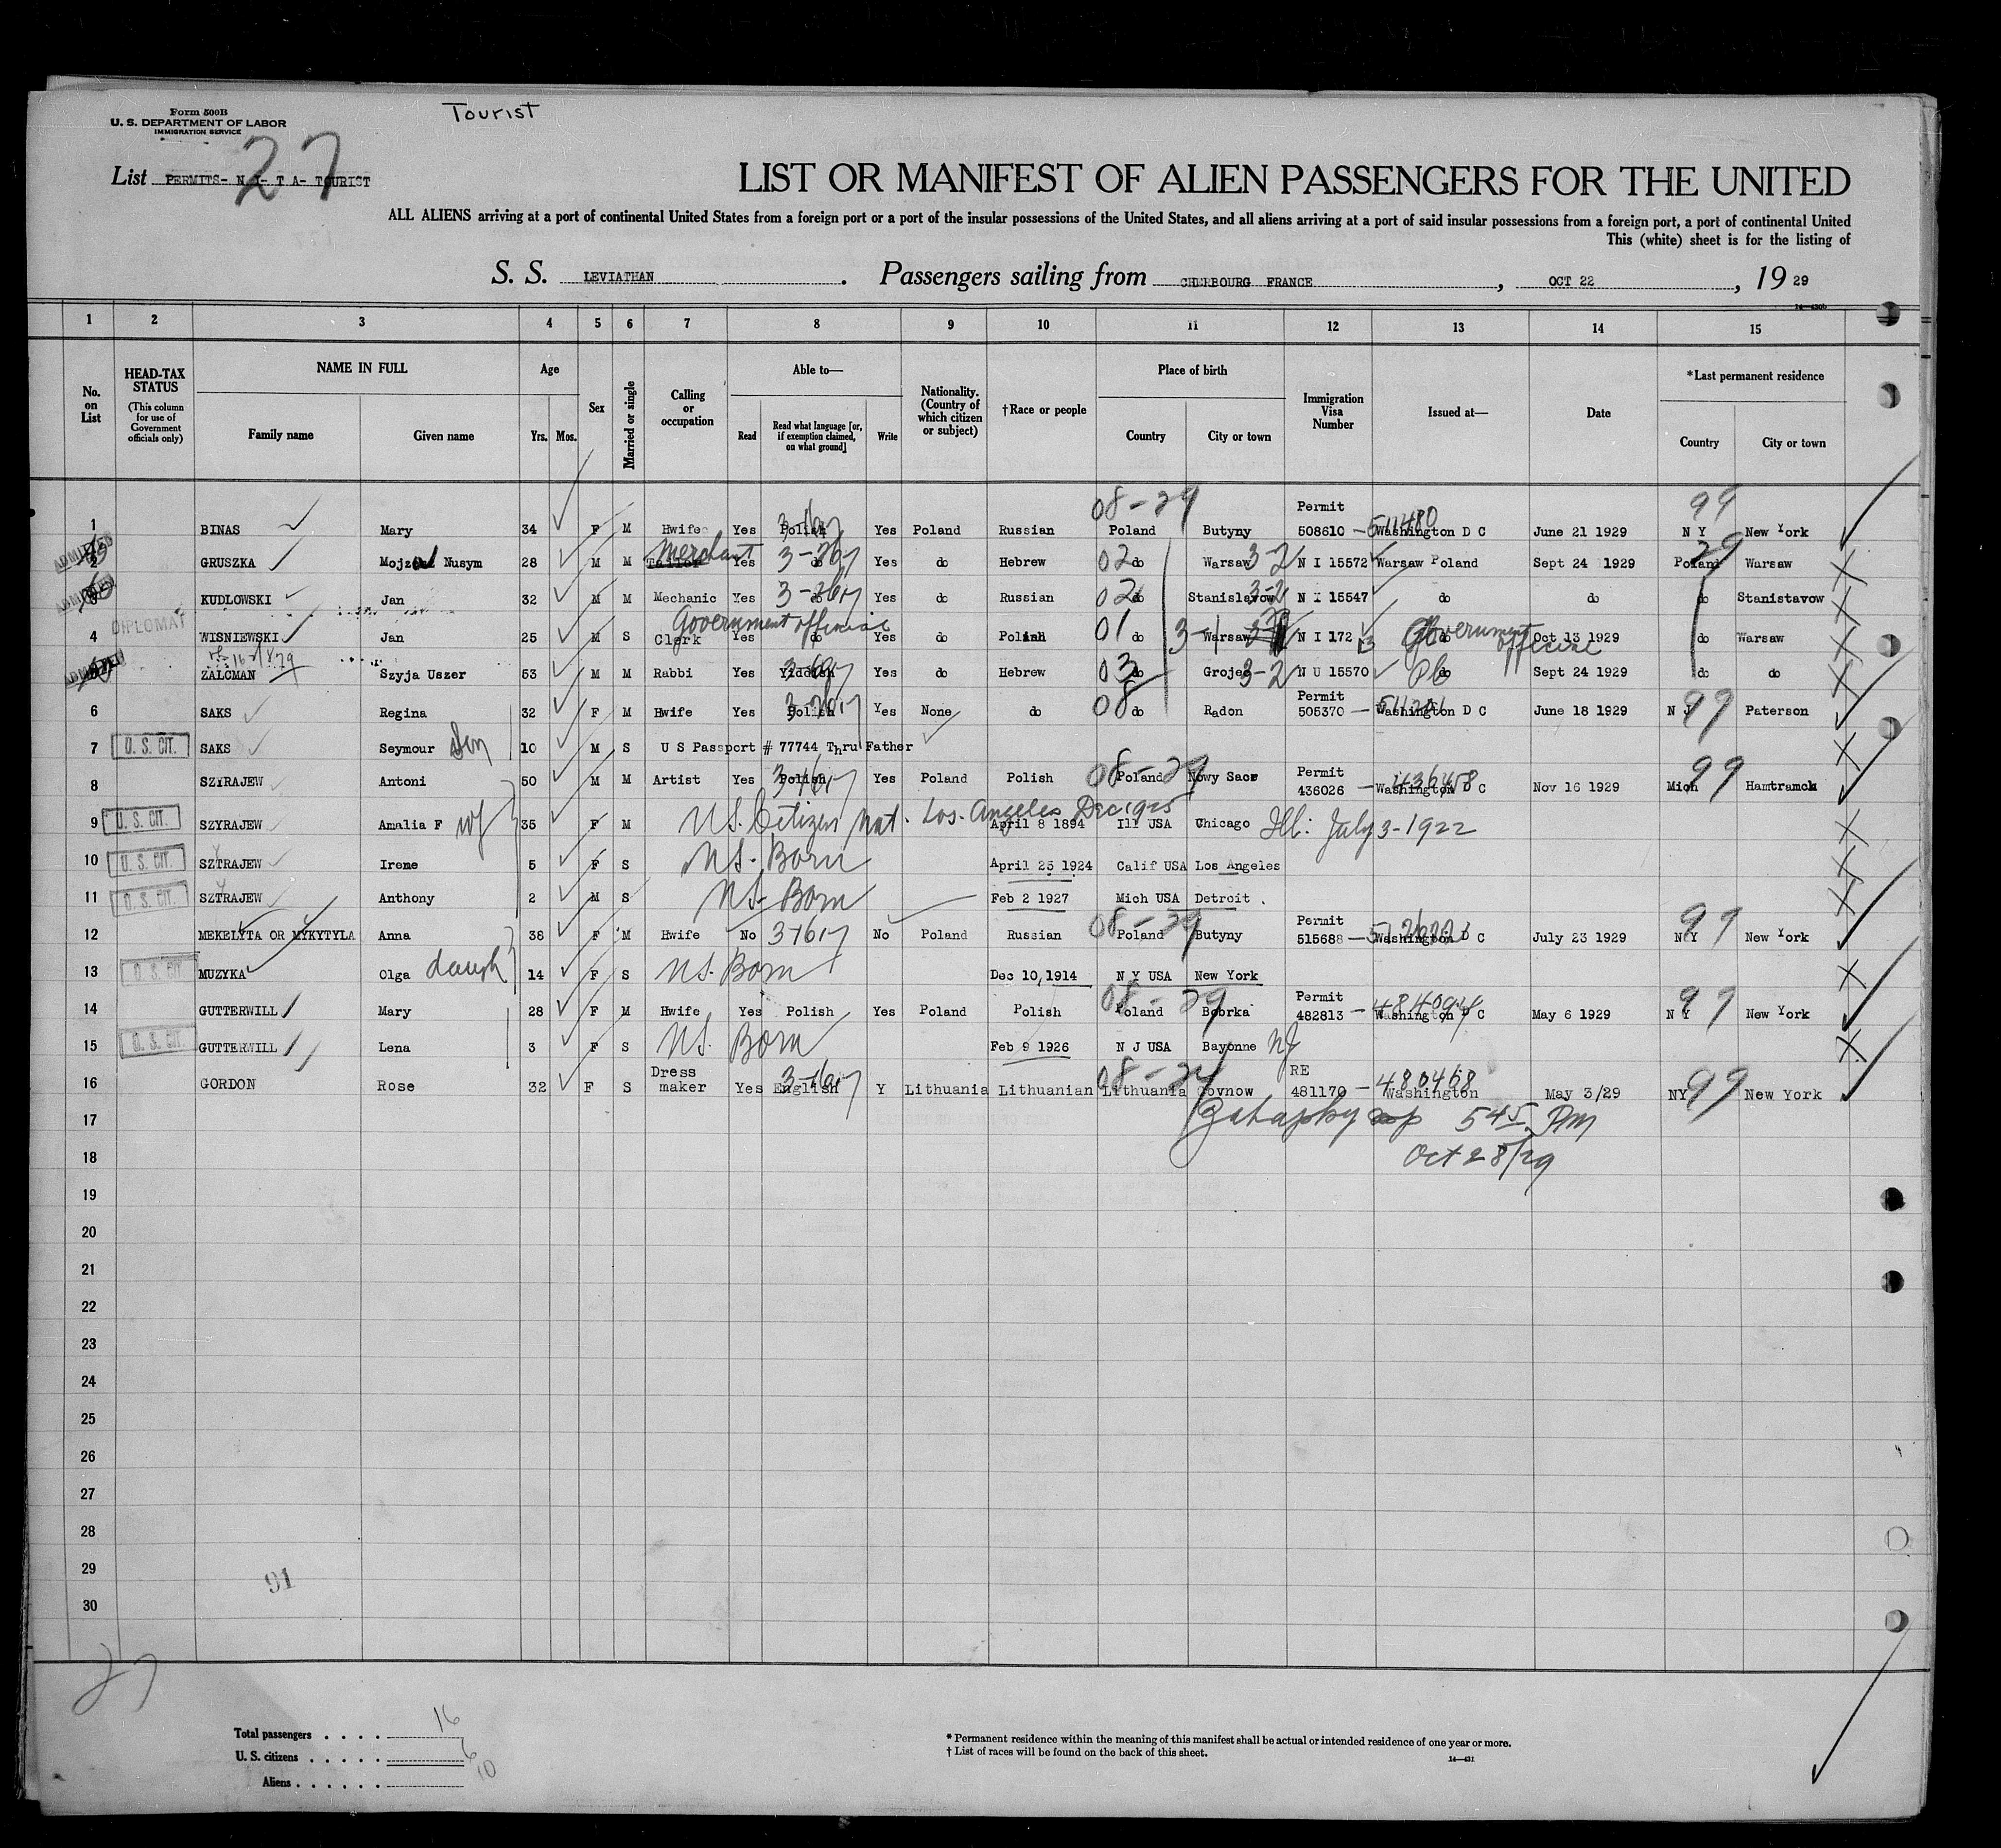 Form 500B
U. S. DEPARTMENT OF LABOR
IMMIGRATION SERVICE
Tourist
27
List PERMITS- N I- T A- TOURIST
LIST OR MANIFEST OF ALIEN PASSENGERS FOR THE UNITED
ALL ALIENS arriving at a port of continental United States from a foreign port or a port of the insular possessions of the United States, and all aliens arriving at a port of said insular possessions from a foreign port, a port of continental United
This (white) sheet is for the listing of
S. S. LEVIATHAN . Passengers sailing from CHERBOURG FRANCE , OCT 22 , 19 29
1 2 3 4 5 6 7 8 9 10 11 12 13 14 15
No. on List
HEAD-TAX STATUS (This column for use of Government officials only)
NAME IN FULL Family name Given name
Age Yrs. Mos.
Sex
Married or single
Calling or occupation
Able to— Read Read what language [or, if exemption claimed, on what ground] Write
Nationality. (Country of which citizen or subject)
†Race or people
Place of birth Country City or town
Immigration Visa Number
Issued at—
Date
*Last permanent residence Country City or town
1 BINAS Mary 34 F M Hwife Yes Polish Yes Poland Russian Poland 08-29 Butyny Permit 508610 — Washington D C 511480 June 21 1929 N Y 99 New York
ADMITTED 2 GRUSZKA Nusym 28 M M Merchant Yes do Yes do Hebrew 02 do Warsaw 3-2 N I 15572 Warsaw Poland Sept 24 1929 Poland 29 Warsaw
ADMITTED 3 KUDLOWSKI Jan 32 M M Mechanic Yes do Yes do Russian 02 do Stanislavow 3-2 N I 15547 do do do Stanistavow
DIPLOMAT 4 WISNIEWSKI Jan 25 M S Clerk Government official Yes do Yes do Polish 01 do 3-1 Warsaw N I 172 Government official Oct 13 1929 do Warsaw
ADMITTED 5 ZALCMAN Szyja Uszer 53 M M Rabbi Yes Yiddish Yes do Hebrew 03 do Grojec 3-2 N U 15570 do Sept 24 1929 do do
6 SAKS Regina 32 F M Hwife Yes Polish Yes None do 08 do Radon Permit 505370 — Washington D C June 18 1929 N J 99 Paterson
7 U. S. CIT. SAKS Seymour Son 10 M S U S Passport # 77744 Thru Father
8 SZYRAJEW Antoni 50 M M Artist Yes Polish Yes Poland Polish 08-29 Poland Nowy Sacz Permit 436026 — Washington D C 436458 Nov 16 1929 Mich 99 Hamtramck
9 U. S. CIT. SZYRAJEW Amalia F wf 35 F M U.S. Citizen Nat. Los. Angeles Dec 1925 April 8 1894 Ill USA Chicago Ill: July 3-1922
10 U. S. CIT. SZTRAJEW Irene 5 F S U.S. Born April 25 1924 Calif USA Los Angeles
11 U. S. CIT. SZTRAJEW Anthony 2 M S U.S. Born Feb 2 1927 Mich USA Detroit
12 MEKELYTA OR MYKYTYLA Anna 38 F M Hwife No No Poland Russian 08-29 Poland Butyny Permit 515688 — Washington D C July 23 1929 N Y 99 New York
13 U. S. CIT MUZYKA Olga daugh 14 F S U.S. Born Dec 10, 1914 N Y USA New York
14 GUTTERWILL Mary 28 F M Hwife Yes Polish Yes Poland Polish 08-29 Poland Bobrka Permit 482813 — Washington D C 484094 May 6 1929 N Y 99 New York
15 U. S. CIT GUTTERWILL Lena 3 F S U.S. Born Feb 9 1926 N J USA Bayonne NJ
16 GORDON Rose 32 F S Dress maker Yes English Y Lithuania Lithuanian Lithuania Covnow RE 481170 — Washington 480468 May 3/29 NY 99 New York
17 5 45 Pm
18 Oct 28/29
19
20
21
22
23
24
25
26
27
28
29
91
30
27
Total passengers . . . . 16
U. S. citizens . . . . . 6
Aliens . . . . . . 10
* Permanent residence within the meaning of this manifest shall be actual or intended residence of one year or more.
† List of races will be found on the back of this sheet.
14—431